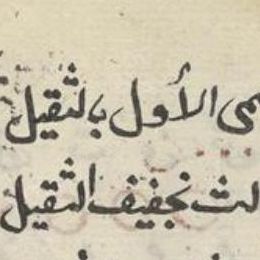 مى الأول بالثقيل
لث نجفيف الثقيل